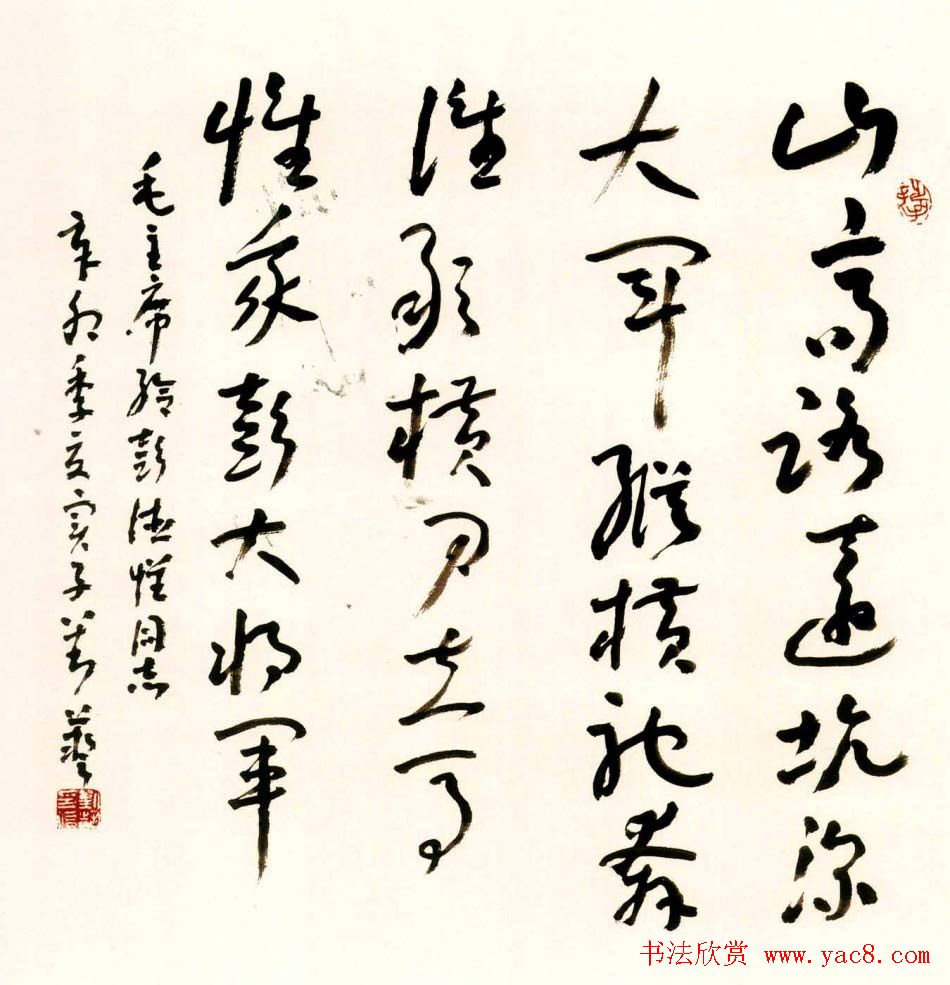 山高路遠坑深
大軍縱橫馳奔
誰敢橫刀立馬
惟我彭大將軍
毛主席給彭德懷同志
辛卯季夏劉藝
书法欣赏 www.yac8.com